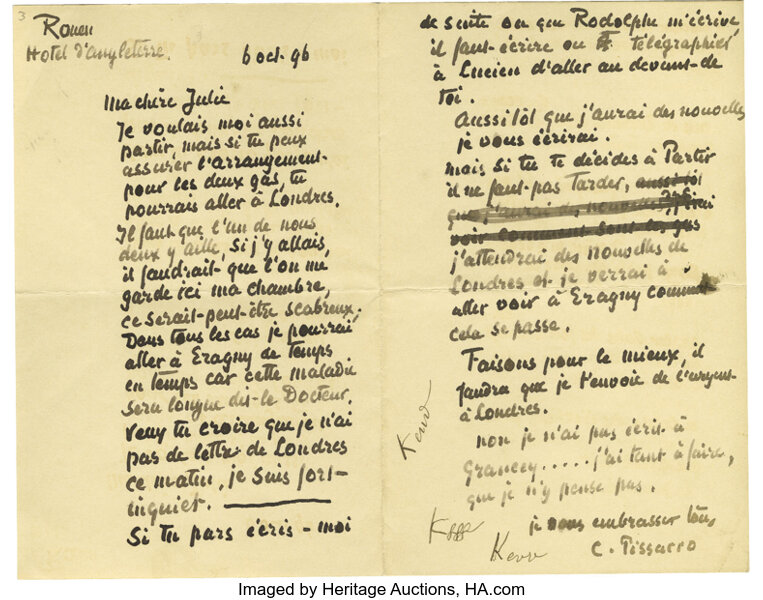 3
Rouen
Hotel d'Angleterre.
6 oct. 96
Ma chère Julie
Je voulais moi aussi
partir, mais si tu peux
assurer l'arrangement
pour les deux gas, tu
pourrais aller à Londres.
Il faut que l'un de nous
deux y aille, si j'y allais,
il faudrait que l'on me
garde ici ma chambre,
ce serait peut-être scabreux.
Dans tous les cas je pourrai
aller à Eragny de temps
en temps car cette maladie
sera longue dit le Docteur.
Veux tu croire que je n'ai
pas de lettre de Londres
ce matin, je suis fort
inquiet.
Si tu pars écris-moi
de suite ou que Rodolphe m'écrive
il faut écrire ou télégraphier
à Lucien d'aller au devant de
toi.
Aussitôt que j'aurai des nouvelles
je vous écrirai.
mais si tu te décides à Partir
il ne faut pas Tarder, aussitôt
que j'aurai des nouvelles j'irai
voir comment sont les gas
j'attendrai des nouvelles de
Londres et je verrai à
aller voir à Eragny comment
cela se passe.
Faisons pour le mieux, il
faudra que je t'envoie de l'argent
à Londres.
non je n'ai pas écrit à
Grancey..... j'ai tant à faire,
que je n'y pense pas.
je vous embrasser tous
C. Pissarro
Imaged by Heritage Auctions, HA.com